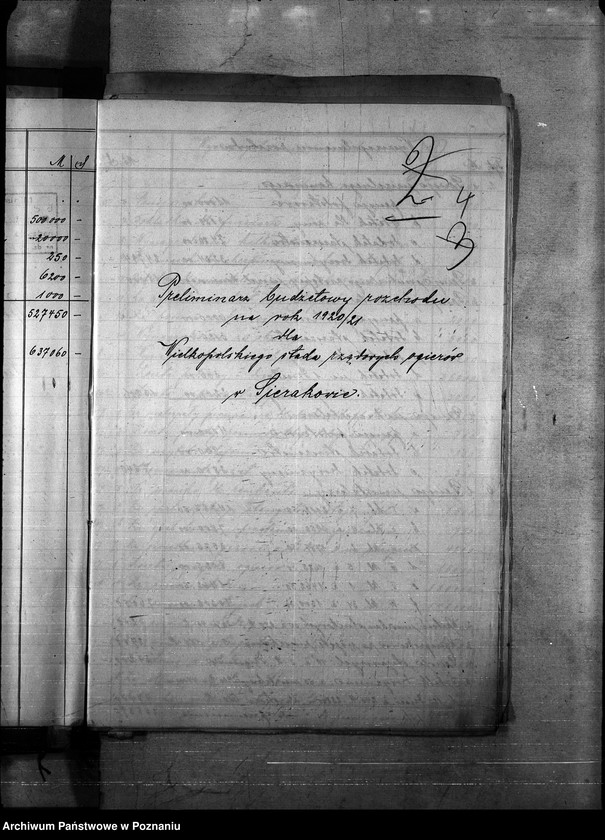 M
.
.
500.000 -
20000 -
250 -
6200 -
1000 -
527450 -
637060 -
2
4
3
Preliminarz budżetowy rozchodu
na rok 1920/21
dla
Wielkopolskiego stada rządowych ogierów
w Sierakowie.
Archiwum Państwowe w Poznaniu